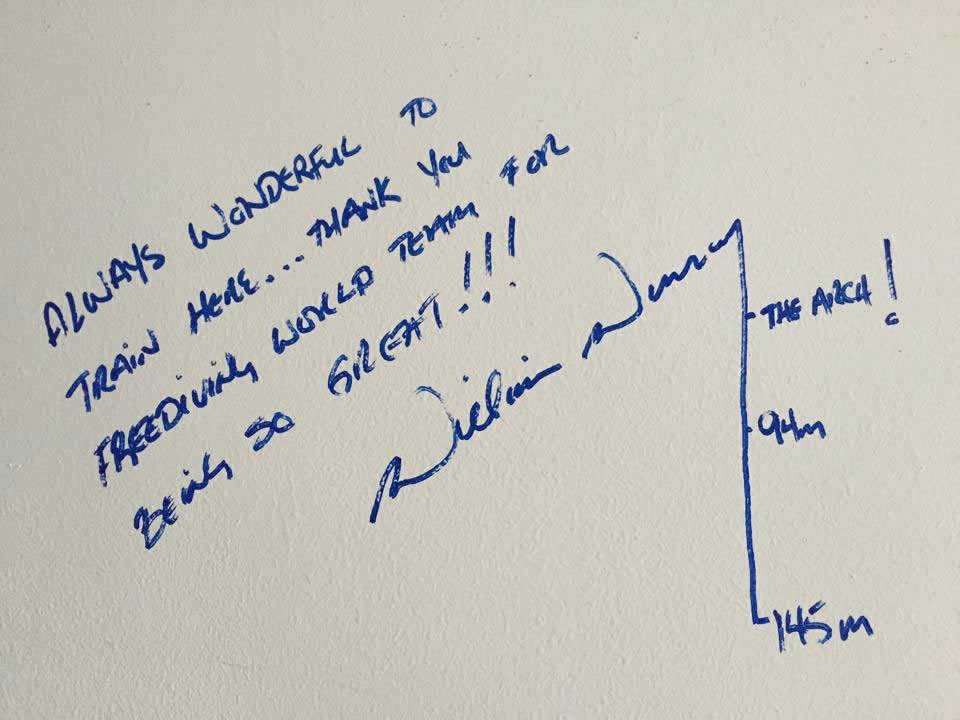 ALWAYS WONDERFUL TO
TRAIN HERE... THANK YOU
FREEDIVING WORLD TEAM FOR
BEING SO GREAT!!!
William
THE ARCH!
94m
145m